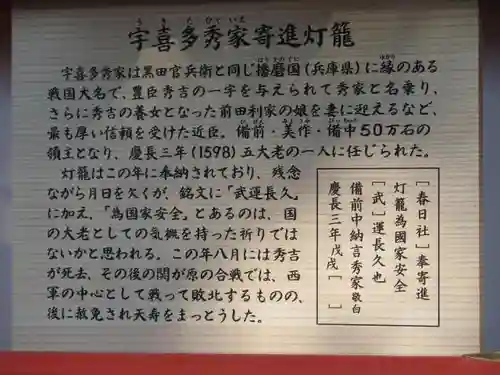 宇喜多秀家寄進灯籠
宇喜多秀家は黒田官兵衛と同じ播磨国(兵庫県)に縁のある
戦国大名で、豊臣秀吉の一字を与えられて秀家と名乗り、
さらに秀吉の養女となった前田利家の娘を妻に迎えるなど、
最も厚い信頼を受けた近臣。備前・美作・備中50万石の
領主となり、慶長三年(1598)五大老の一人に任じられた。
灯籠はこの年に奉納されており、残念
ながら月日を欠くが、銘文に「武運長久」
に加え、「為国家安全」とあるのは、国
の大老としての気概を持った祈りでは
ないかと思われる。この年八月には秀吉
が死去、その後の関が原の合戦では、西
軍の中心として戦って敗北するものの、
後に赦免され天寿をまっとうした。
[春日社]奉寄進
灯籠為國家安全
[武]運長久也
備前中納言秀家敬白
慶長三年戊戌[ ]